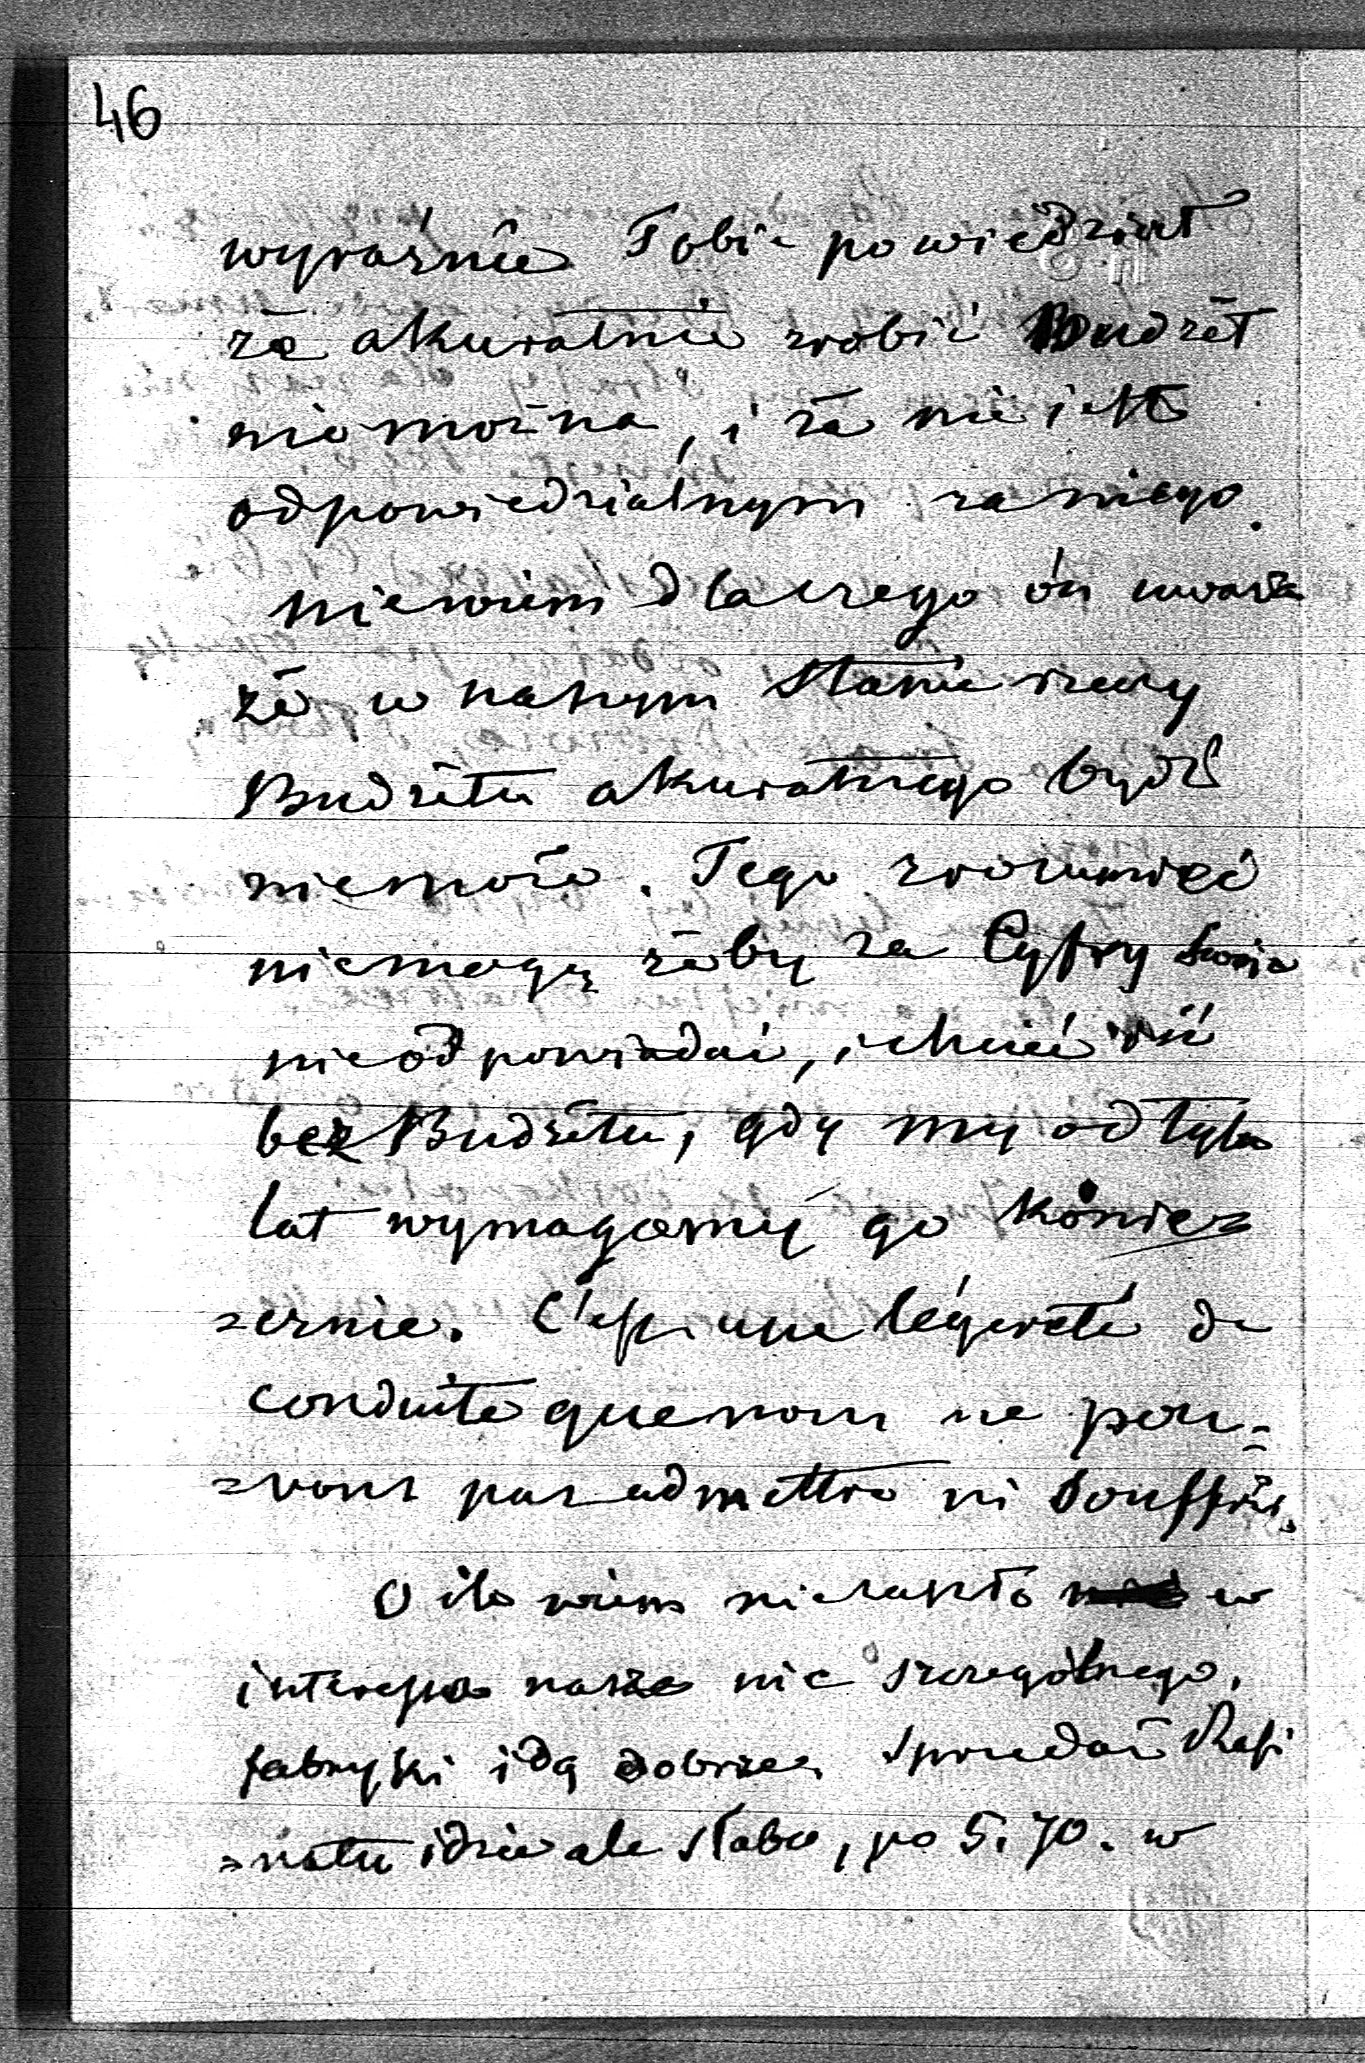 46
wyraźnie Tobie powiedział
że akuratnie zrobić Budżet
niemożna, i że nie jest
odpowiedzialnym za niego.
niewiem dlaczego ón uważa
że w naszym stanie rzeczy
Budżetu akuratnego bydź
niemoże. Tego zrozumieć
niemogę żeby za Cyfry swoje
nieodpowiadać, i chcieć iść
bez Budżetu, gdy my od tylu
lat wymagamy go koniec=
=znie. C'est une légèreté de
conduite que nous ne pou=
=vons pas admettre ni souffrir.
O ile wiem niezaszło w
interesie nasze nic szczególnego,
fabryki idą dobrze. Sprzedaż Rafi
=natu idzie ale słabo, po 5.70. w